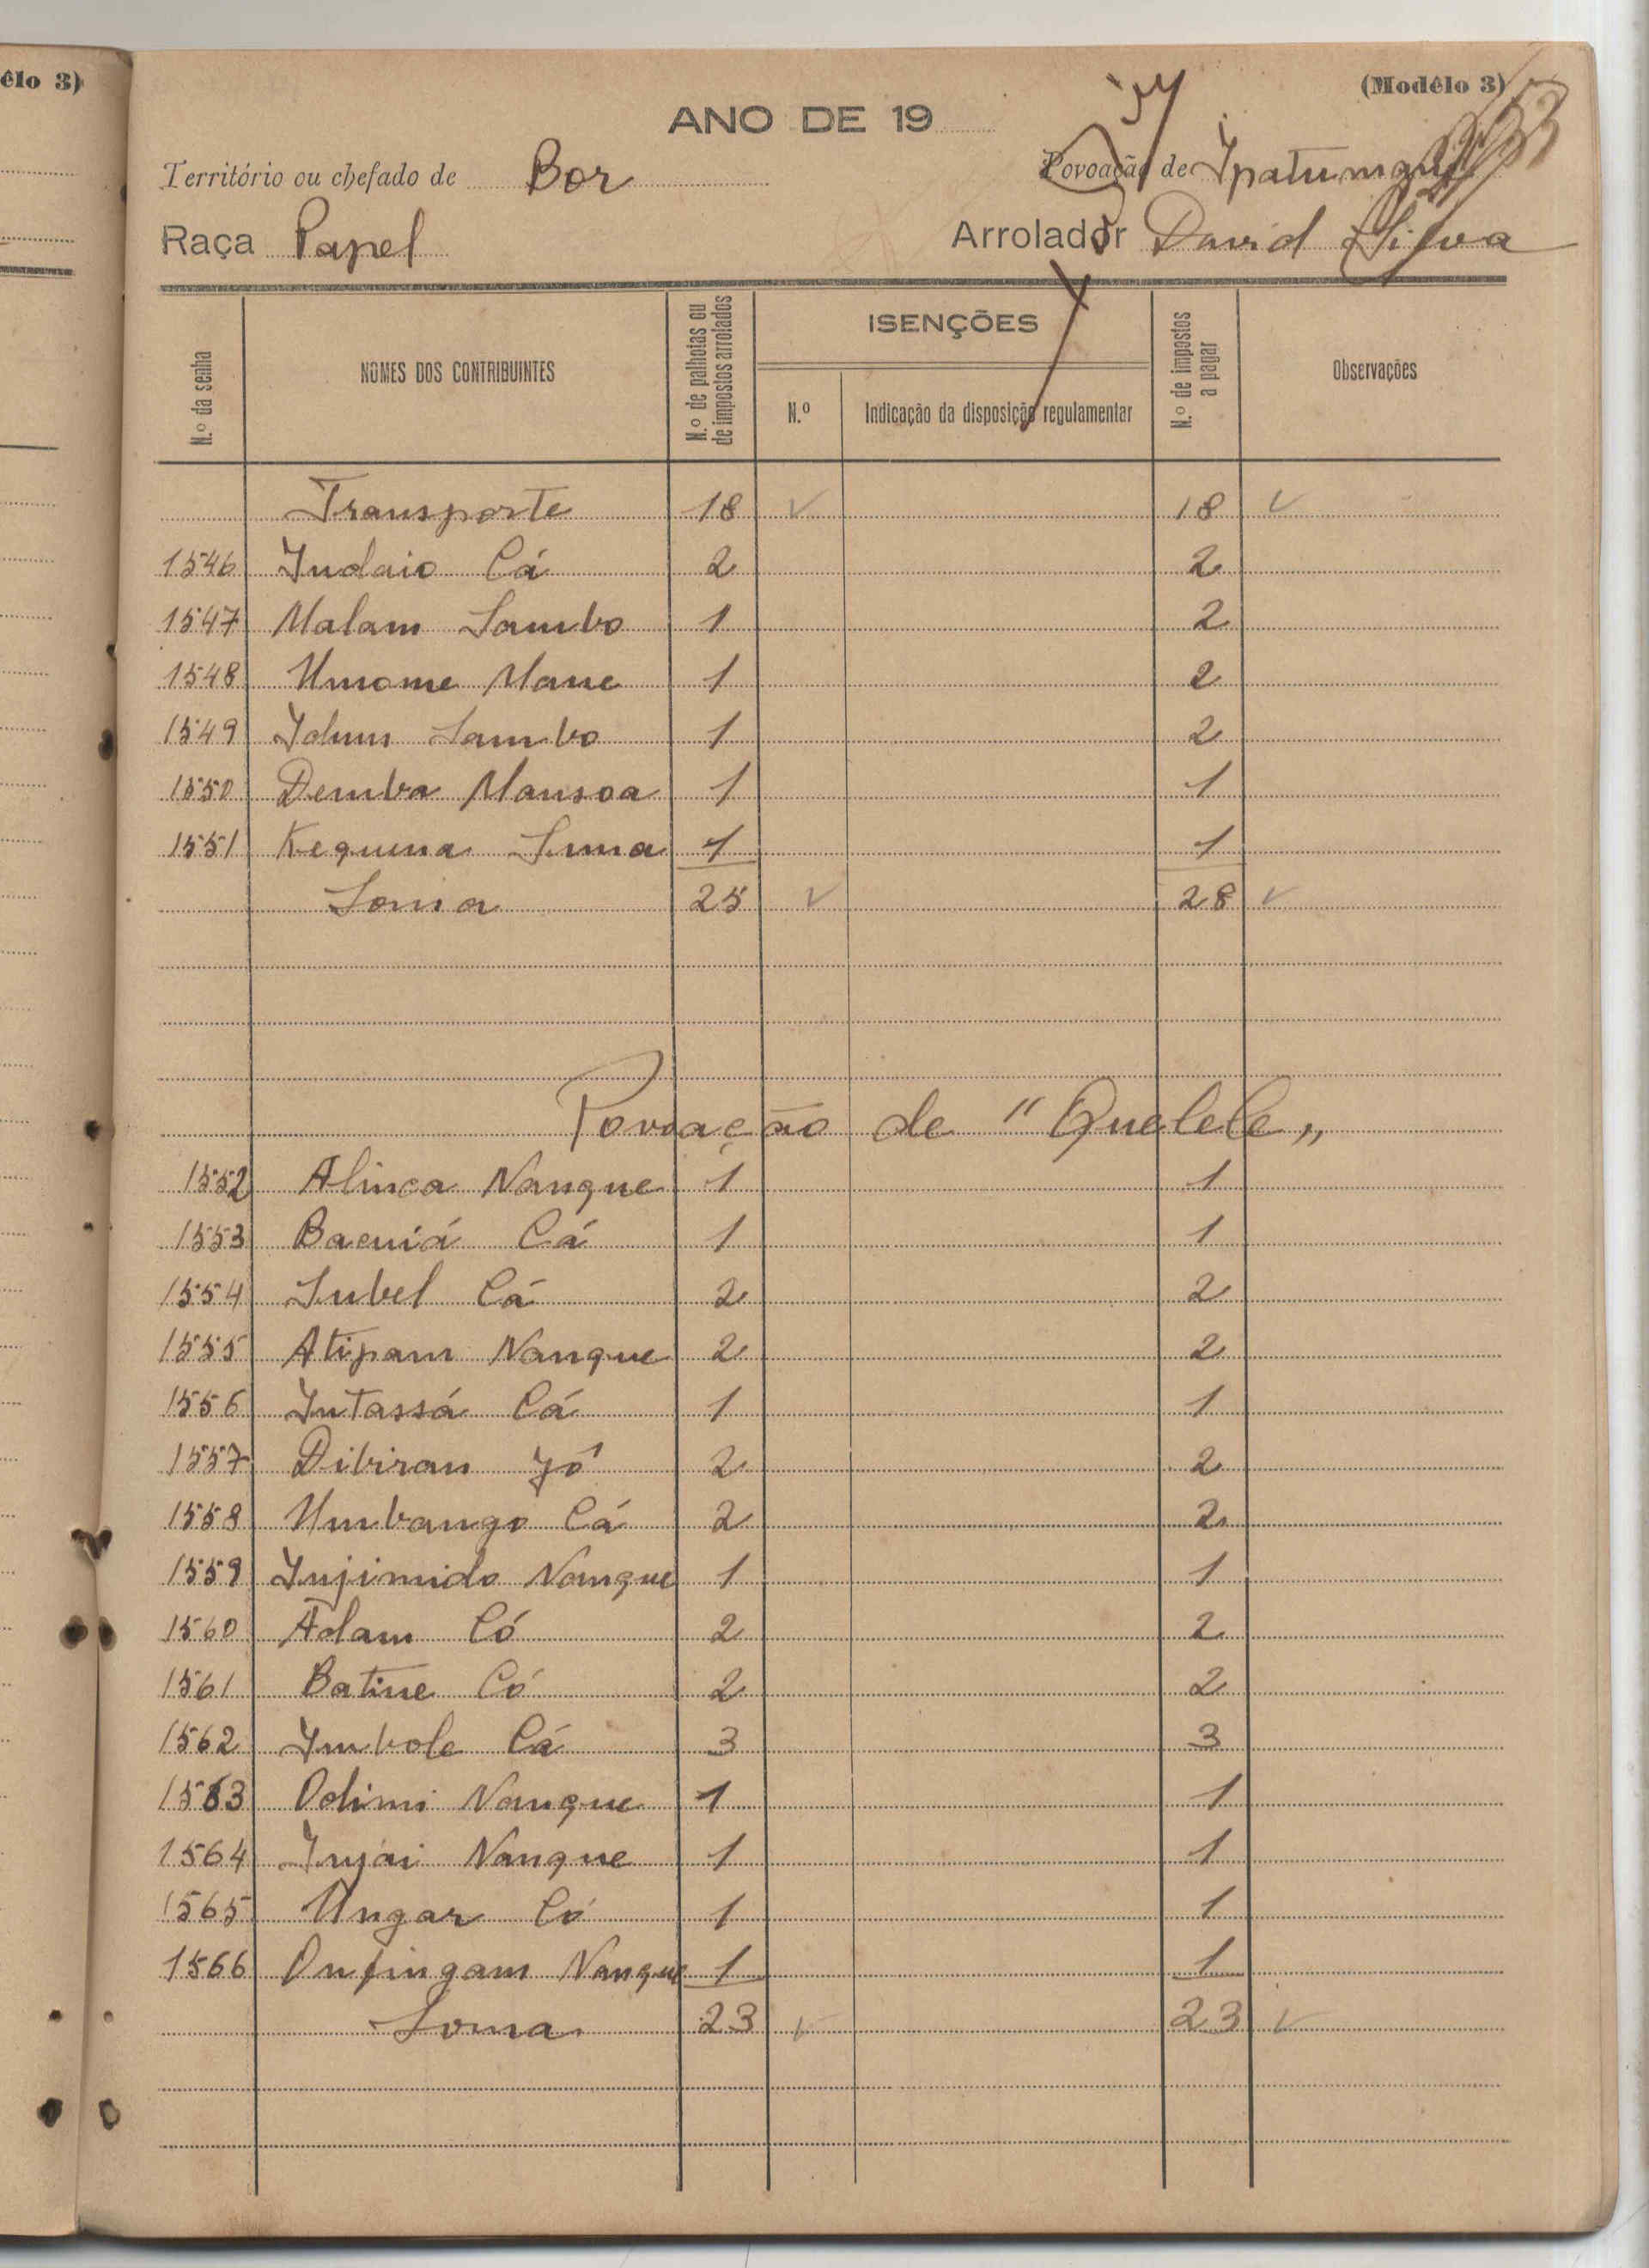 êlo 3)
(Modêlo 3)
ANO DE 19
Território ou chefado de Bor
Povoação de
Raça Papel
Arrolador David Silva
N.º da senha
NOMES DOS CONTRIBUINTES
N.º de palhotas ou de impostos arrolados
ISENÇÕES
N.º
Indicação da disposição regulamentar
N.º de impostos a pagar
Observações
Transporte 18 ✓ 18 ✓
1546 Indaio Cá 2 2
1547 Malam Sambo 1 2
1548 Umome Mane 1 2
1549 Sambo 1 2
1550 Demba Mansoa 1 1
1551 1 1
Soma 25 ✓ 28 ✓
Povoação de "Quelele„
1552 Alinca Nanque 1 1
1553 Cá 1 1
1554 Cá 2 2
1555 Atipam Nanque 2 2
1556 Intassá Cá 1 1
1557 Dibiran 2 2
1558 Umbango Cá 2 2
1559 Injimido Nanque 1 1
1560 Adam Có 2 2
1561 Batine Có 2 2
1562 Imbole Cá 3 3
1563 Odimi Nanque 1 1
1564 Injai Nanque 1 1
1565 Ungar Có 1 1
1566 Onfingam Nanque 1 1
Soma 23 ✓ 23 ✓